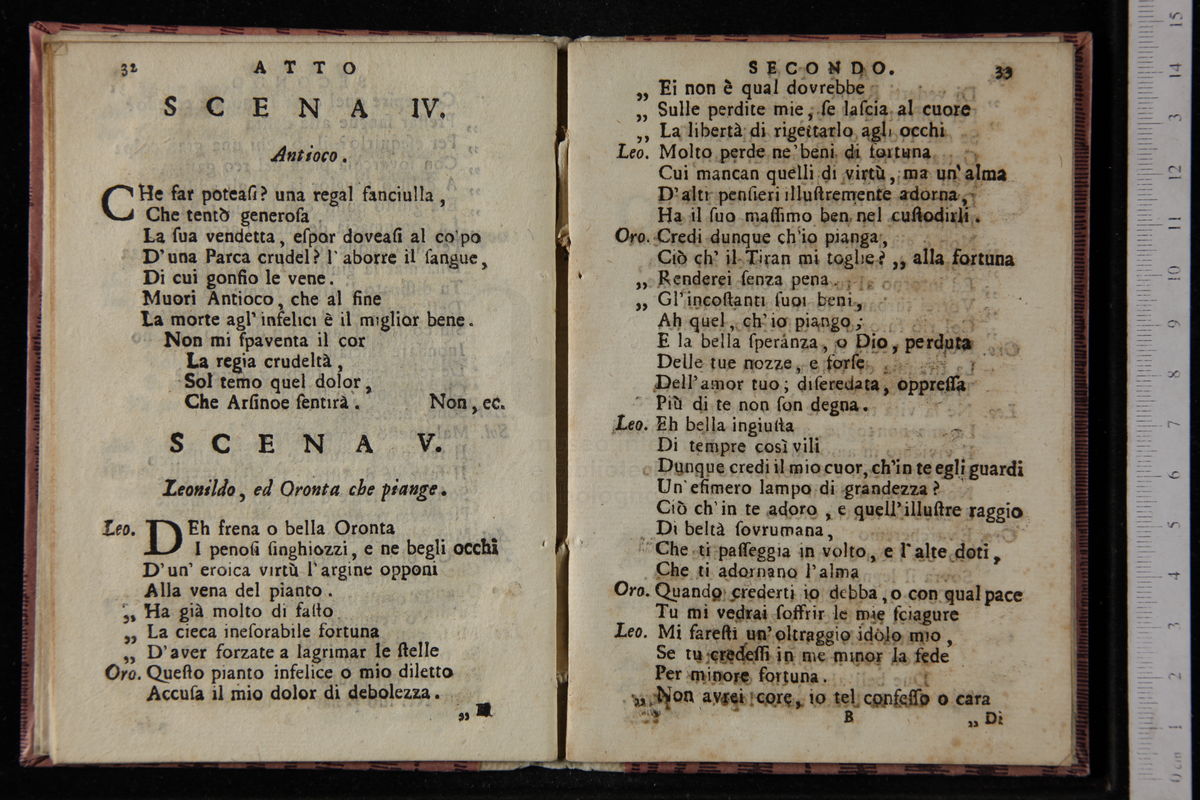 32 ATTO
SCENA IV.
Antioco.
CHe far poteasi? una regal fanciulla,
Che tentò generosa
La sua vendetta, espor doveasi al co'po
D'una Parca crudel? l'aborre il sangue,
Di cui gonfio le vene.
Muori Antioco, che al fine
La morte agl'infelici è il miglior bene.
Non mi spaventa il cor
La regia crudeltà,
Sol temo quel dolor,
Che Arsinoe sentirà. Non, ec.
SCENA V.
Leonildo, ed Oronta che piange.
Leo. DEh frena o bella Oronta
I penosi singhiozzi, e ne begli occhi
D'un' eroica virtù l'argine opponi
Alla vena del pianto.
„ Ha già molto di fasto
„ La cieca inesorabile fortuna
„ D'aver forzate a lagrimar le stelle
Oro. Questo pianto infelice o mio diletto
Accusa il mio dolor di debolezza.
„ E
SECONDO. 33
„ Ei non è qual dovrebbe
„ Sulle perdite mie, se lascia al cuore
„ La libertà di rigettarlo agli occhi
Leo. Molto perde ne'beni di fortuna
Cui mancan quelli di virtù, ma un'alma
D'altri pensieri illustremente adorna,
Ha il suo massimo ben nel custodirli.
Oro. Credi dunque ch'io pianga,
Ciò ch' il Tiran mi toglie? „ alla fortuna
„ Renderei senza pena
„ Gl'incostanti suoi beni,
Ah quel, ch'io piango;
E la bella speranza, o Dio, perduta
Delle tue nozze, e forse
Dell'amor tuo; diseredata, oppressa
Più di te non son degna.
Leo. Eh bella ingiusta
Di tempre così vili
Dunque credi il mio cuor, ch'in te egli guardi
Un'efimero lampo di grandezza?
Ciò ch'in te adoro, e quell'illustre raggio
Di beltà sovrumana,
Che ti passeggia in volto, e l'alte doti,
Che ti adornano l'alma
Oro. Quando crederti io debba, o con qual pace
Tu mi vedrai soffrir le mie sciagure
Leo. Mi faresti un'oltraggio idolo mio,
Se tu credessi in me minor la fede
Per minore fortuna.
„ Non avrei core, io tel confesso o cara
B „ Di